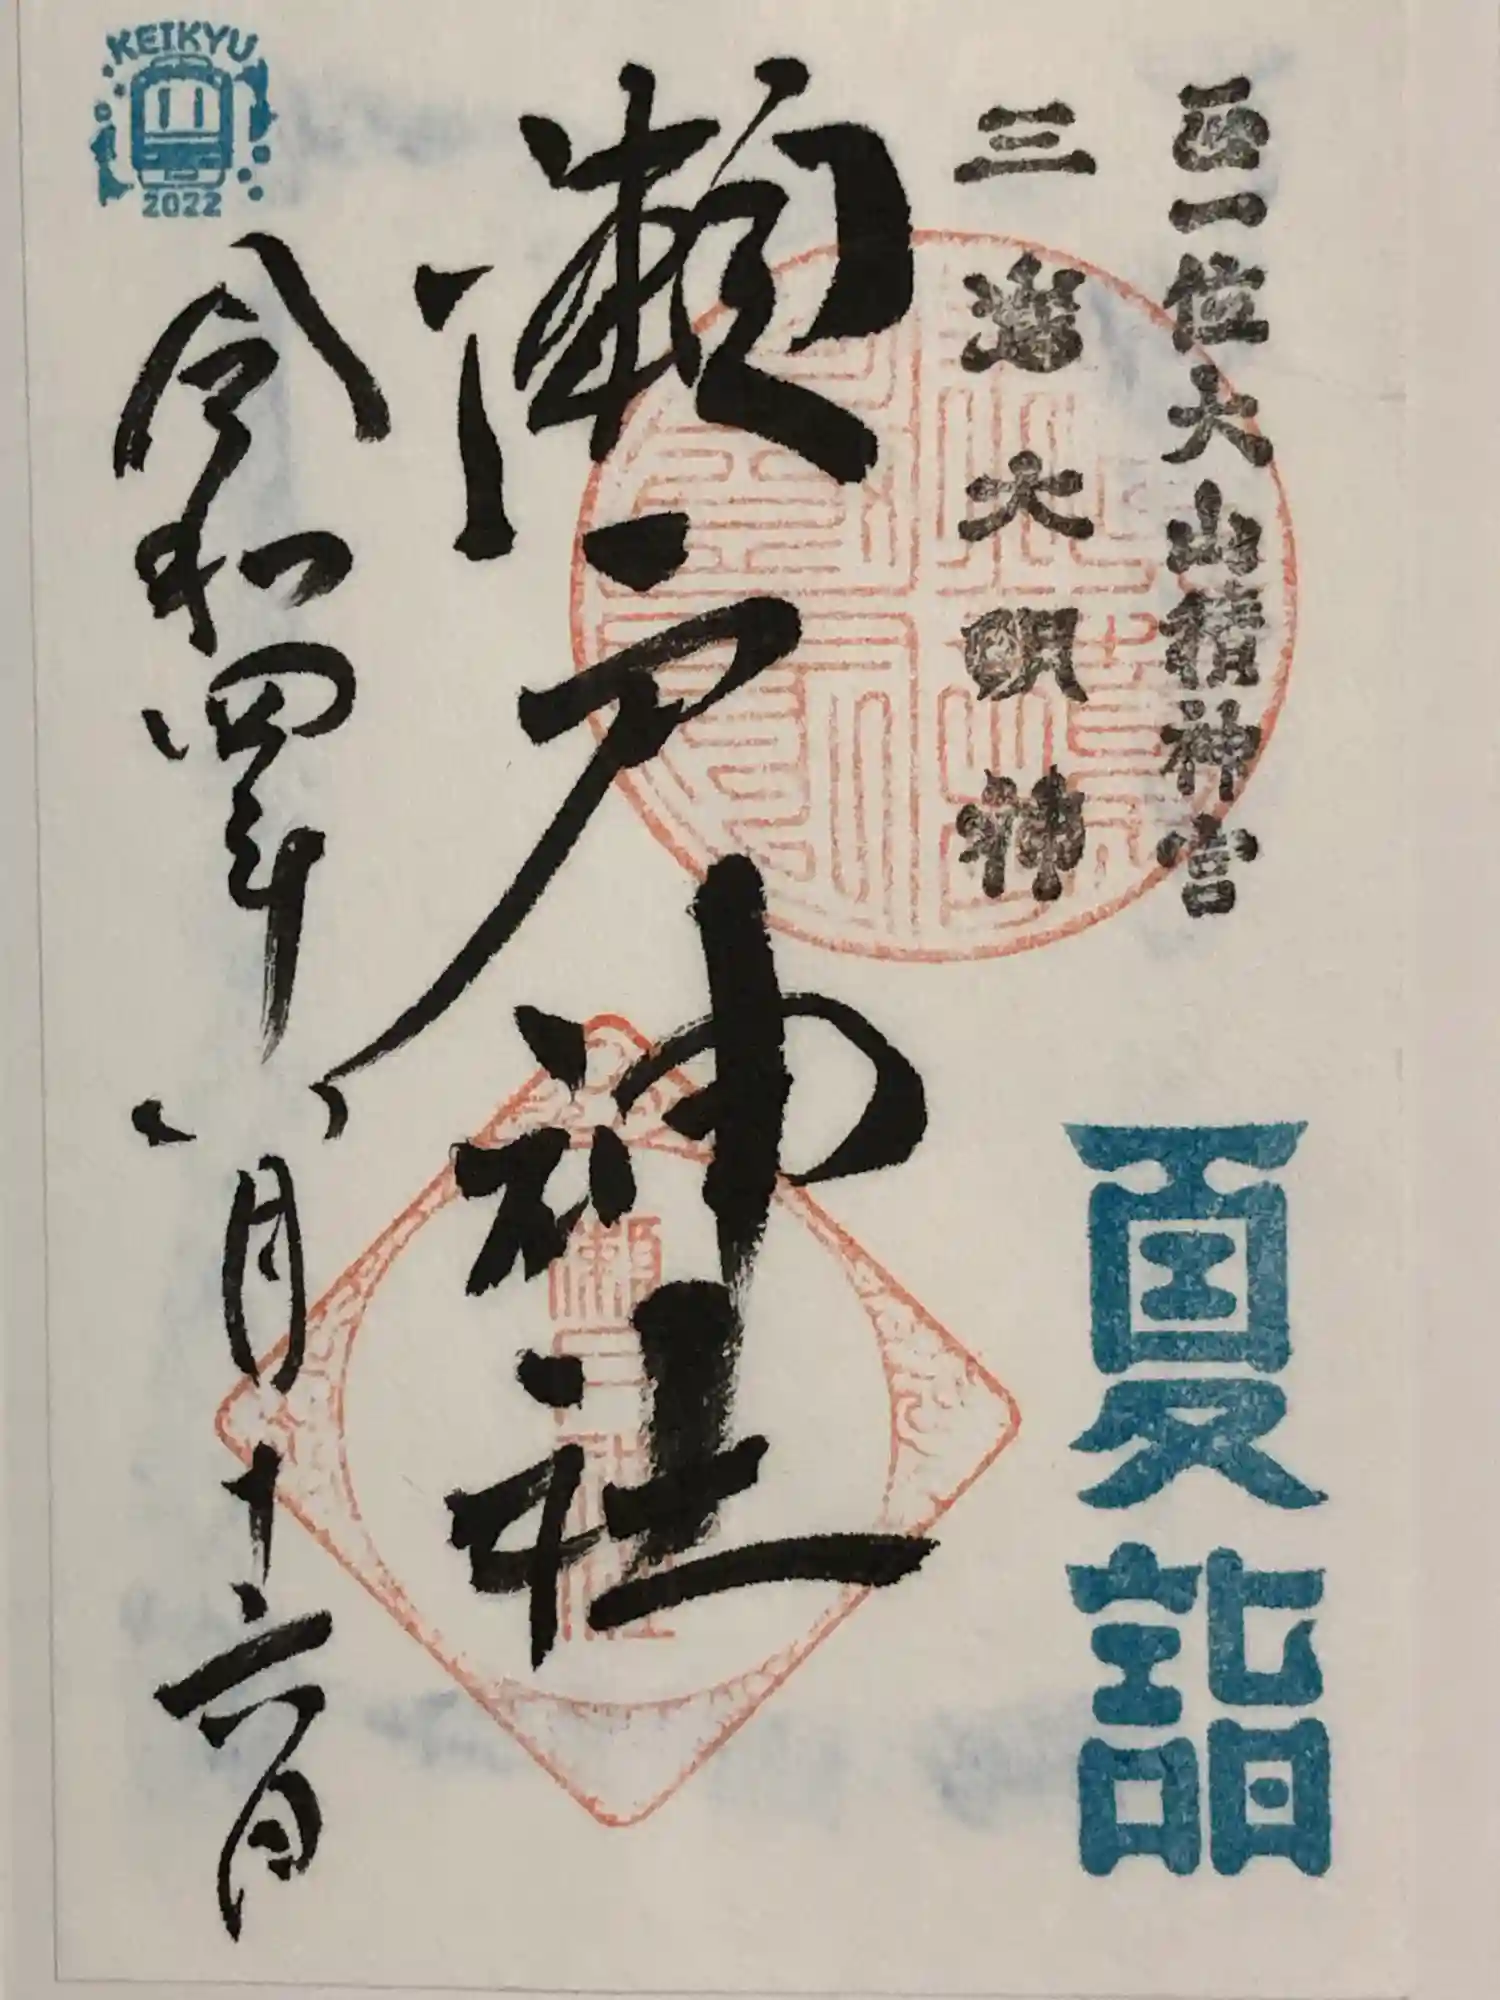 正一位大山積神宮
三嶋大明神
夏詣
瀬戸神社
令和四年八月十六日
KEIKYU
2022
瀬戸神社